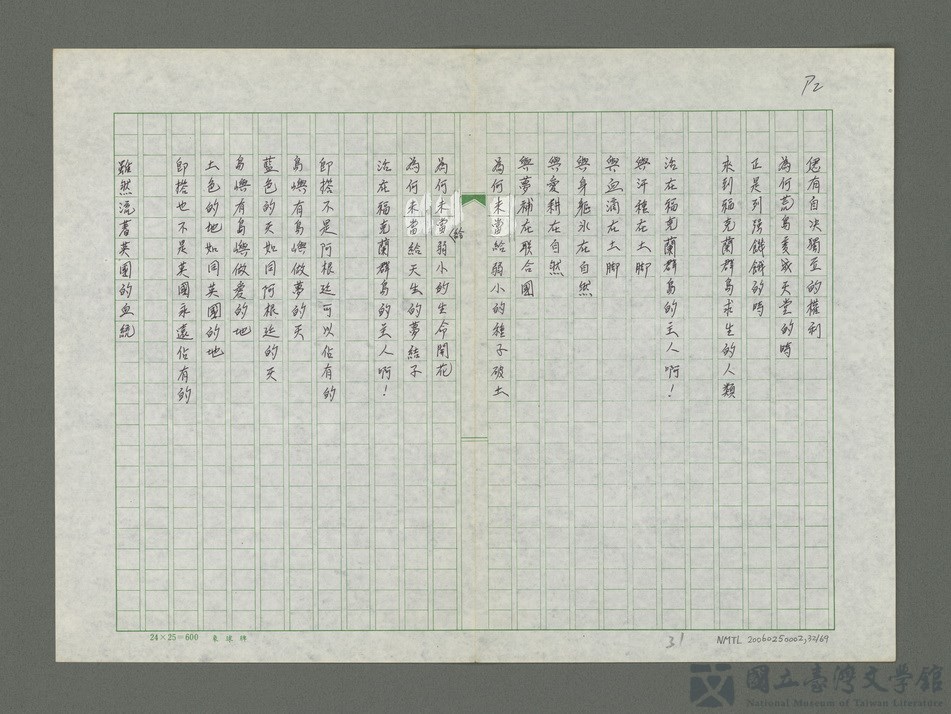 P2
偲有自決獨立的權利
為何荒島變成天堂的時
正是列强餓餓的時
來到福克蘭群島求生的人類
活在福克蘭群島的主人啊！
與汗種在土腳
與血滴在土腳
與身軀永在自然
與愛耕在自然
與夢種在联合國
為何未當給弱小的種子破土
為何未當給弱小的生命開花
為何未當給天生的夢結子
活在福克蘭群島的主人啊！
即搭不是阿根廷可以佔有的
島嶼有島嶼做夢的天
藍色的天如同阿根廷的天
島嶼有島嶼做愛的地
土色的地如同英國的地
即搭也不是英國永遠佔有的
雖然流著英國的血統
24×25=600
31
NMTL 20060250002,32/69
國立臺灣文學館
National Museum of Taiwan Literature